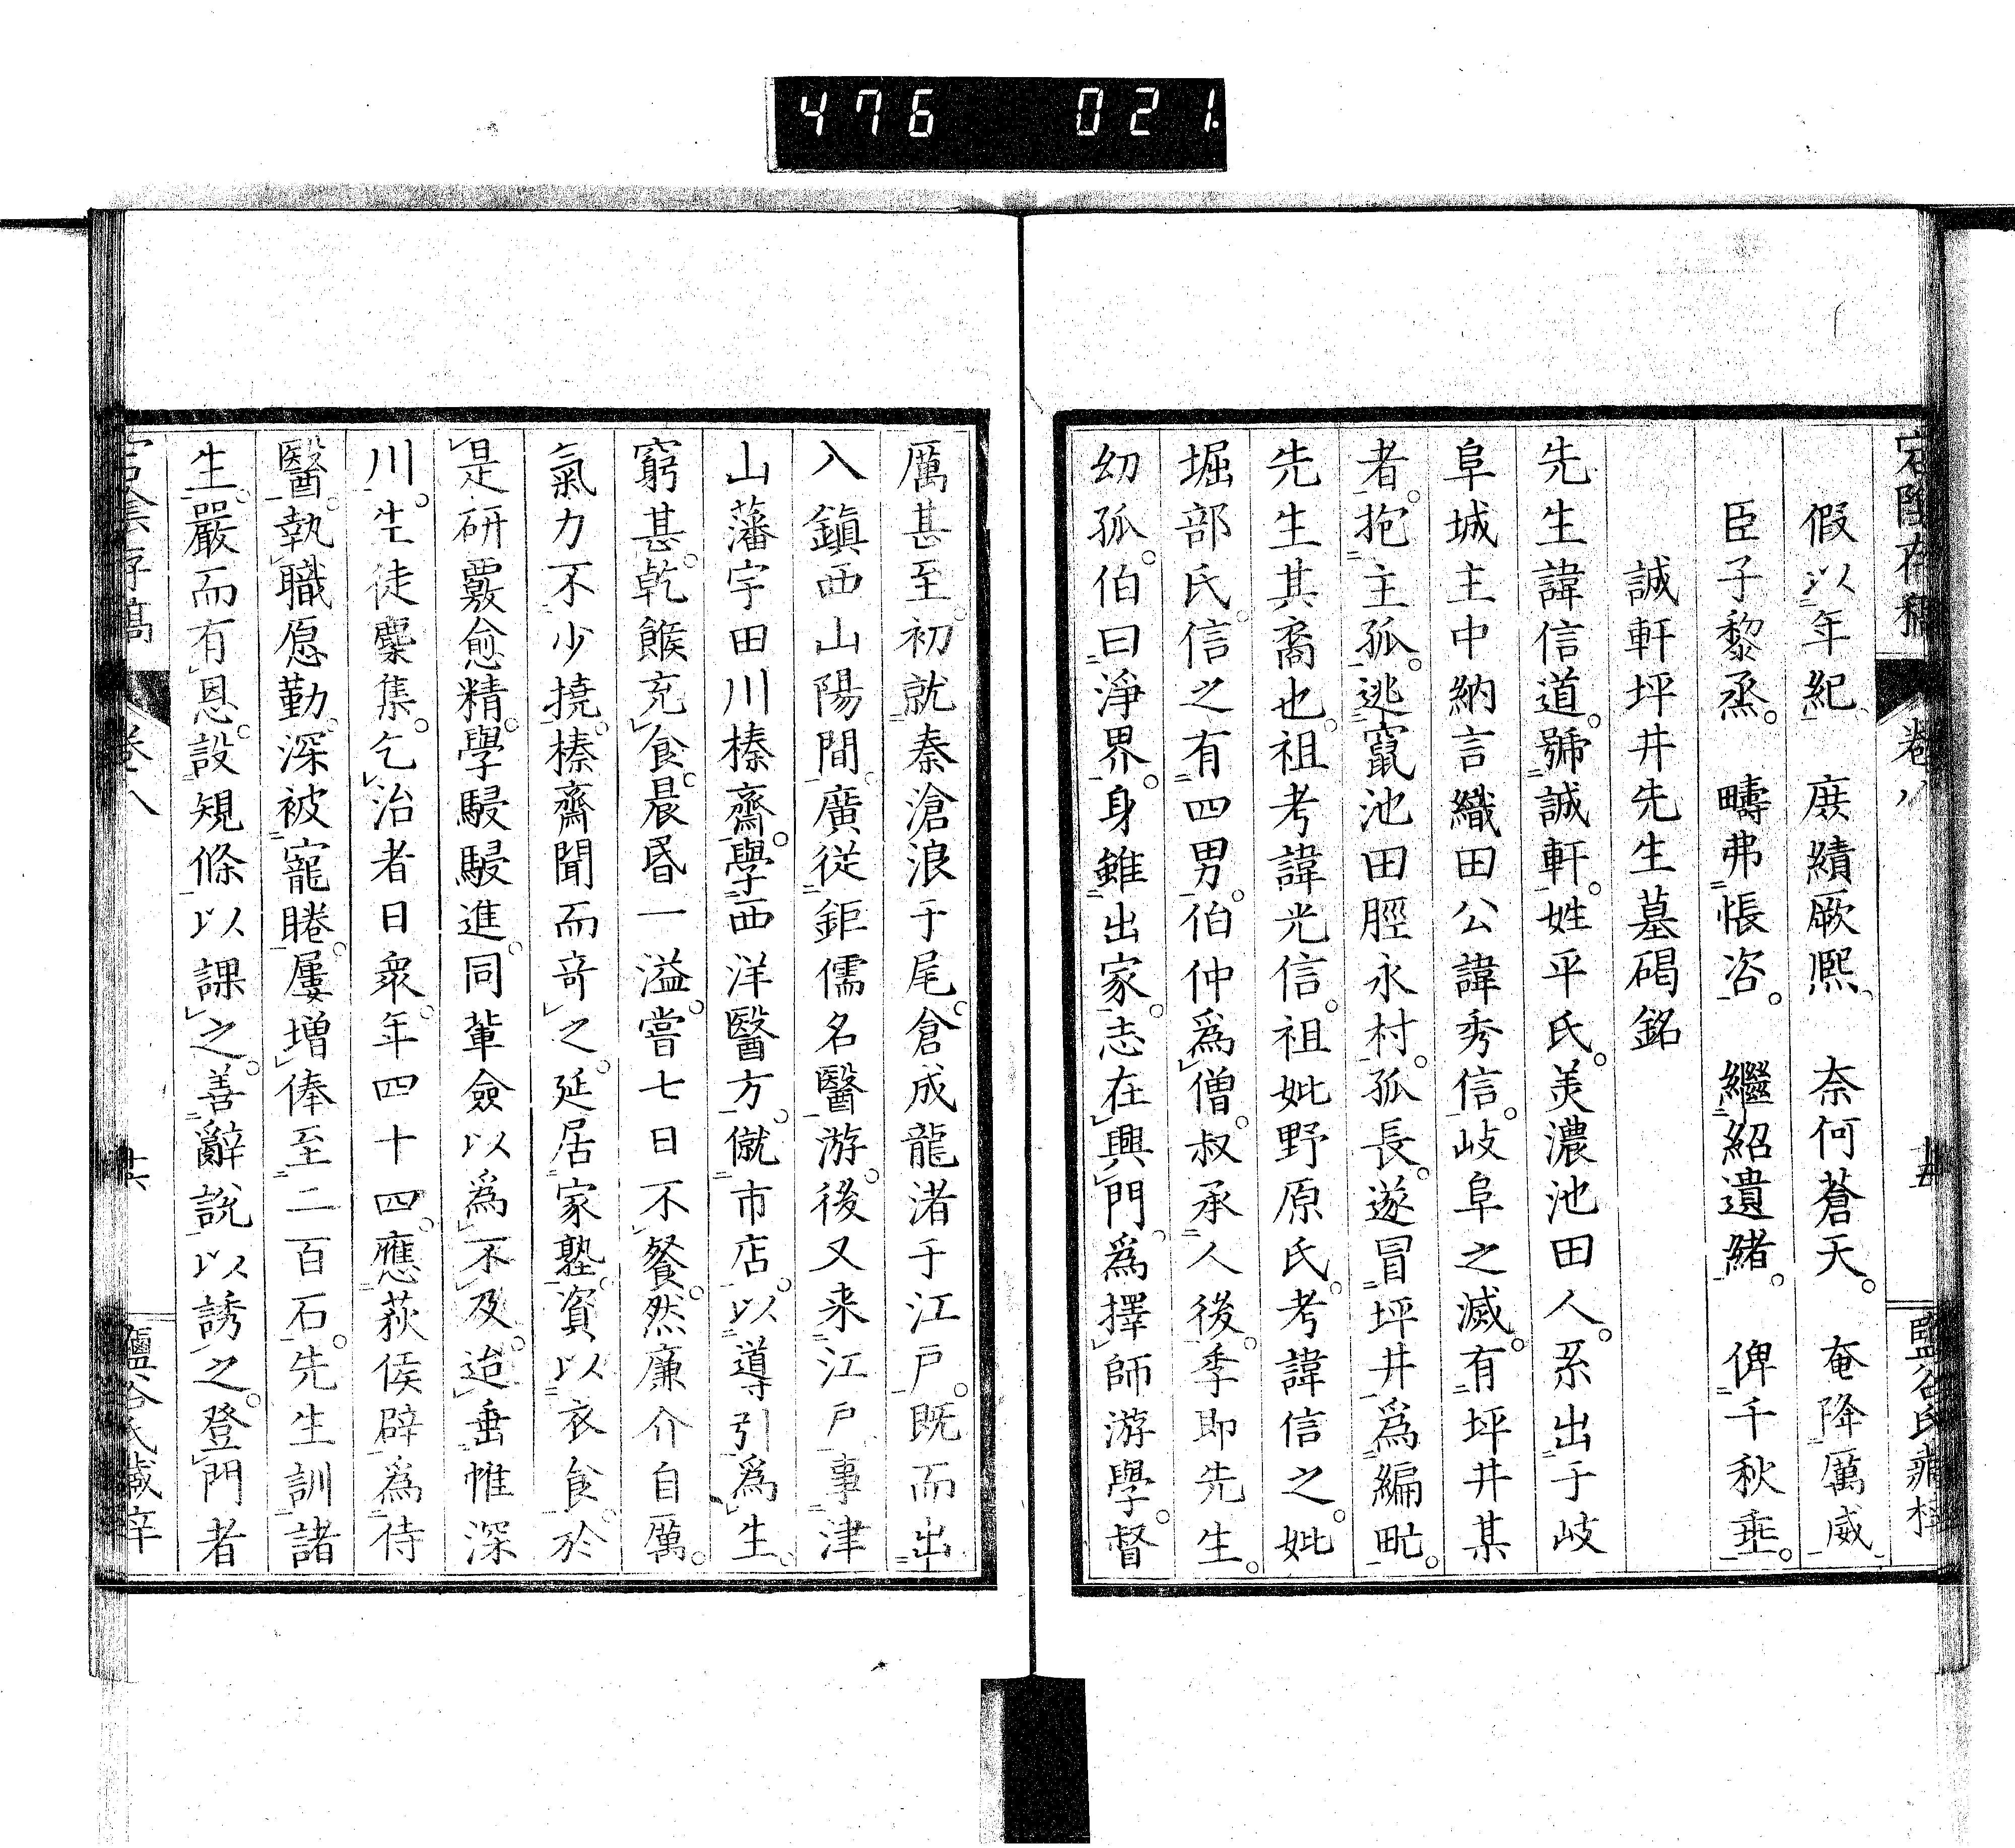 476 021
宕陰存稿 卷八 十五 鹽谷氏藏梓
假以年紀、庶績厥熙、奈何蒼天。奄降厲威、
臣子黎烝。疇弗悵咨。繼紹遺緒。俾千秋垂。
誠軒坪井先生墓碣銘
先生諱信道。號誠軒。姓平氏。美濃池田人。系出于岐
阜城主中納言織田公諱秀信。岐阜之滅。有坪井某
者。抱主孤。逃竄池田脛永村。孤長。遂冒坪井爲編甿。
先生其裔也。祖考諱光信。祖妣野原氏。考諱信之。妣
堀部氏。信之有四男。伯仲爲僧。叔承人後。季即先生。
幼孤。伯曰淨界。身雖出家。志在興門。爲擇師游學。督
厲甚至。初就秦滄浪于尾。倉成龍渚于江戶。既而出
入鎭西山陽間。廣從鉅儒名醫游。後又来江戶。事津
山藩宇田川榛齋。學西洋醫方。僦市店。以導引爲生。
窮甚。乾餱充食。晨昏一溢。嘗七日不餐。然廉介自厲。
氣力不少撓。榛齋聞而奇之。延居家塾。資以衣食。於
是研覈愈精。學駸駸進。同輩僉以爲不及。迨垂帷深
川。生徒麇集。乞治者日衆。年四十四。應萩侯辟爲侍
醫。執職愿勤。深被寵睠。屢增俸至二百石。先生訓諸
生。嚴而有恩。設規條以課之。善辭說以誘之。登門者
宕陰存稿 卷八 十六 鹽谷氏藏梓